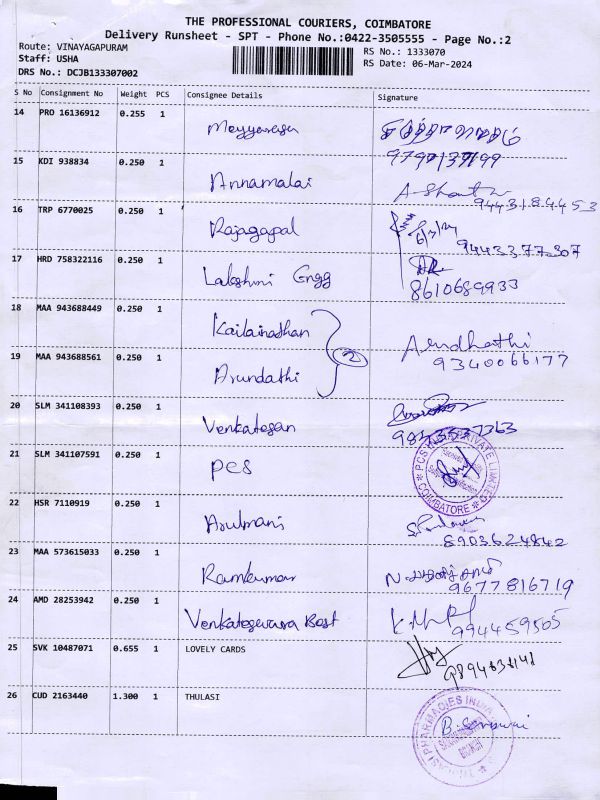 THE PROFESSIONAL COURIERS, COIMBATORE
Delivery Runsheet - SPT - Phone No.:0422-3505555 - Page No.:2
Route: VINAYAGAPURAM
Staff: USHA
DRS No.: DCJB133307002
RS No.: 1333070
RS Date: 06-Mar-2024
S No Consignment No Weight PCS Consignee Details Signature
14 PRO 16136912 0.255 1
9790139199
15 KDI 938834 0.250 1 Annamalai
9443184453
16 TRP 6770025 0.250 1 Rajagapal
6/3/24
9443377307
17 HRD 758322116 0.250 1 Lakshmi Engg
8610689933
18 MAA 943688449 0.250 1 Kailainathan
2
Arndhathi
9340066177
19 MAA 943688561 0.250 1 Arundathi
20 SLM 341108393 0.250 1 Venkatesan
21 SLM 341107591 0.250 1 PCS
COIMBATORE
22 HSR 7110919 0.250 1 Arulmani
8903624842
23 MAA 573615033 0.250 1 Ramkumar
9677816719
24 AMD 28253942 0.250 1 Venkateswara Bost
994459505
25 SVK 10487071 0.655 1 LOVELY CARDS
26 CUD 2163440 1.300 1 THULASI